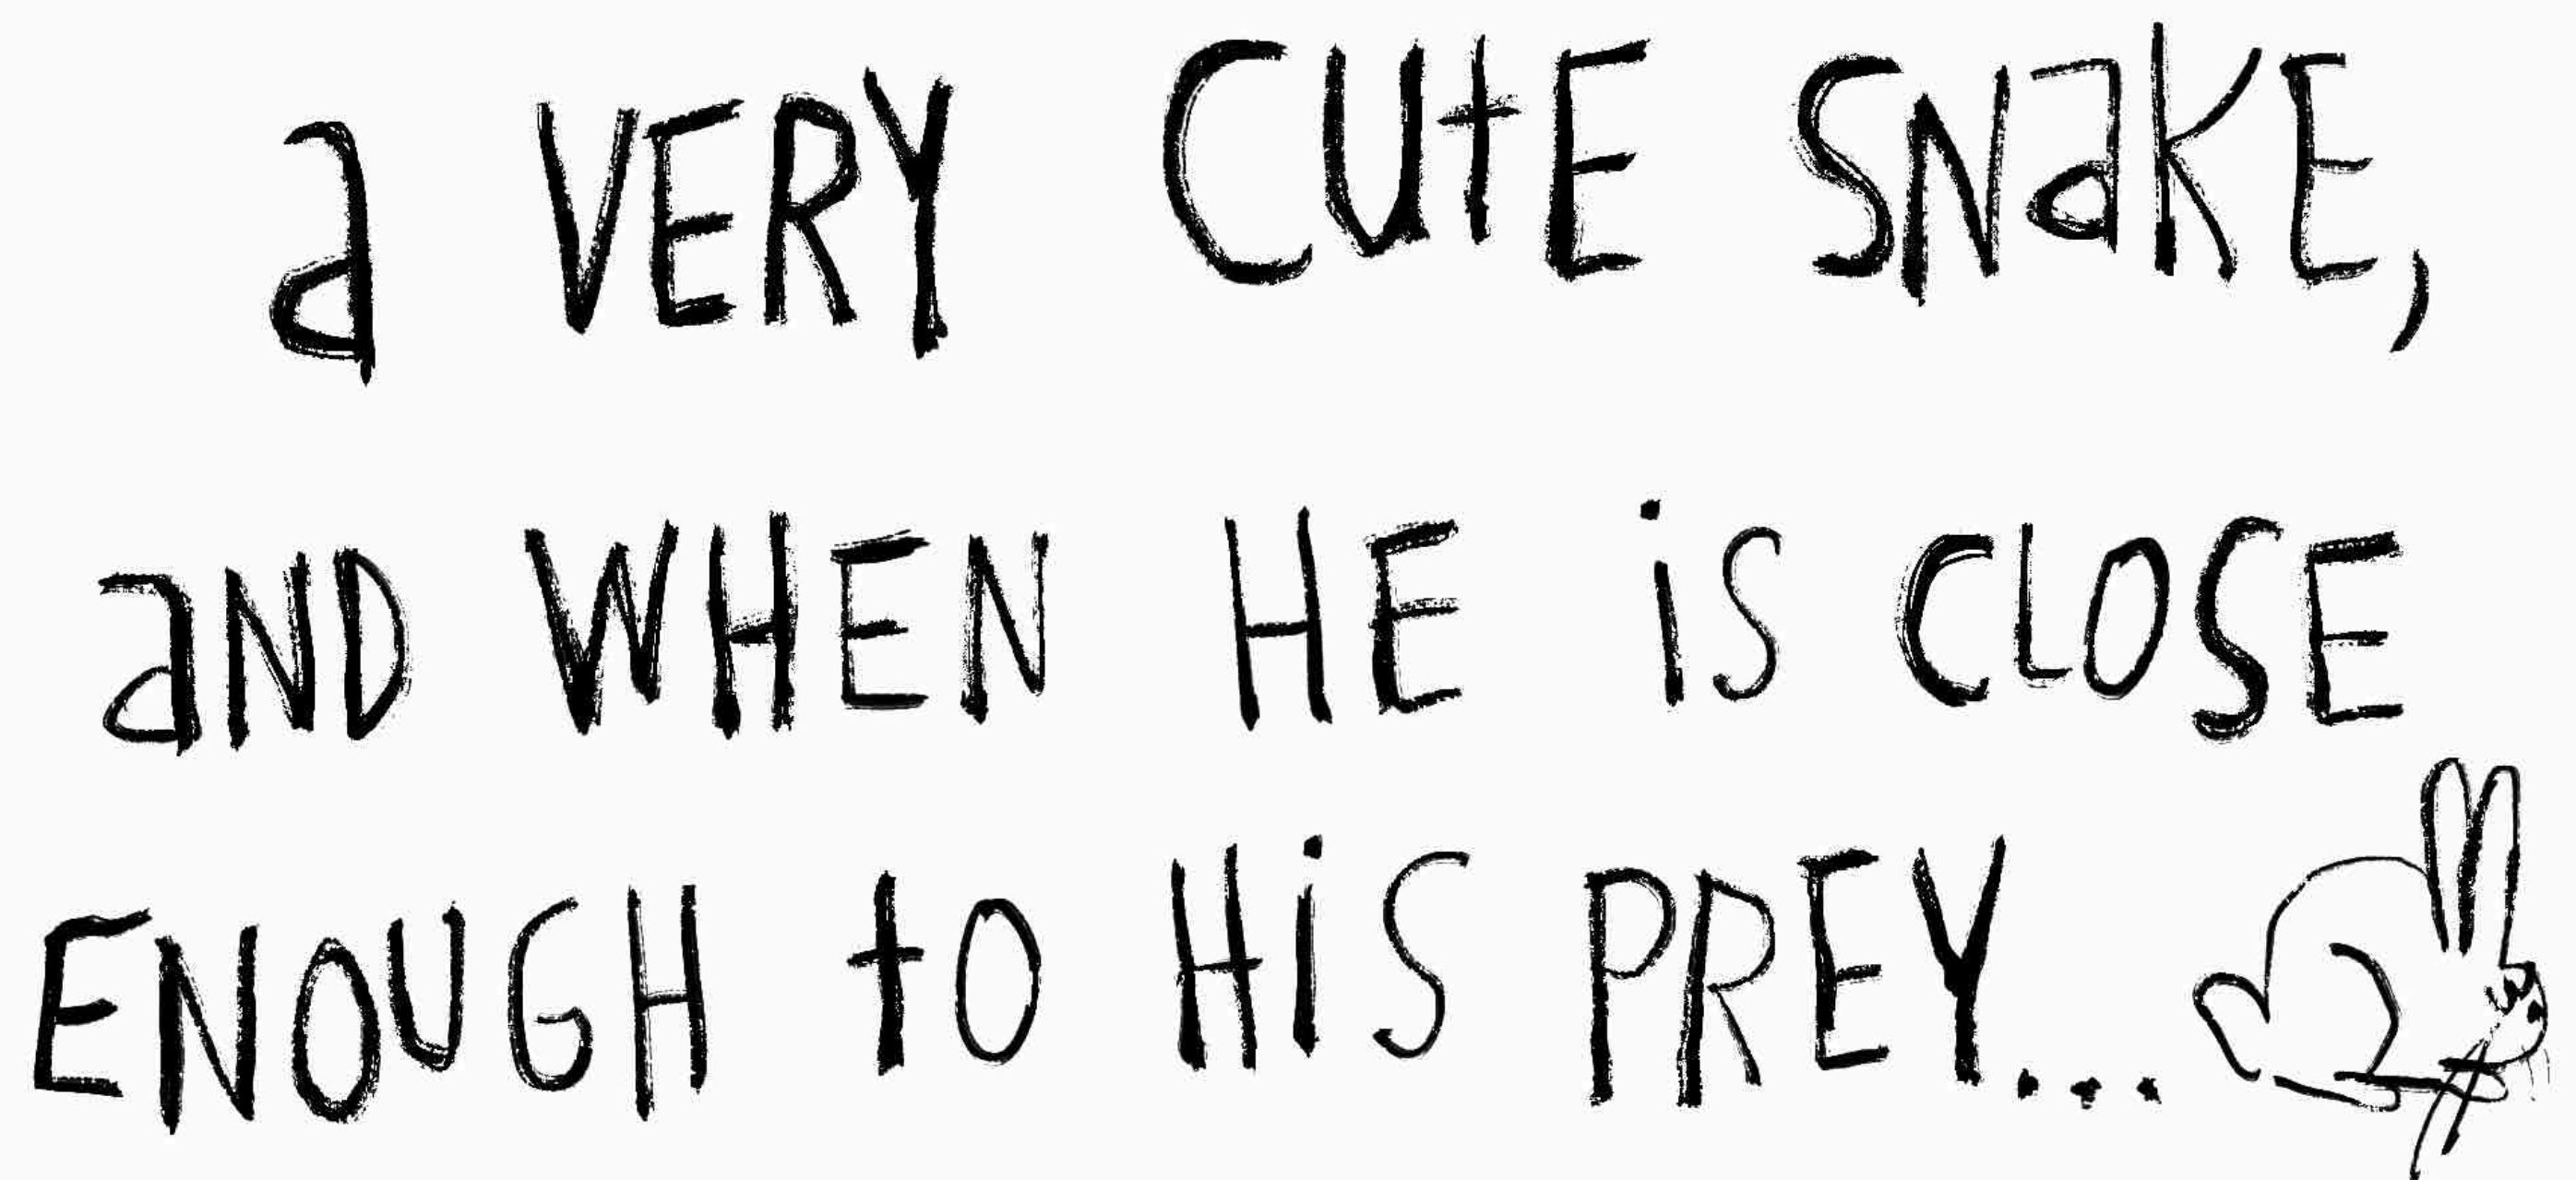 a VERY CUtE SNaKE,
aND WHEN HE iS CLOSE
ENOUGH tO HiS PREY...